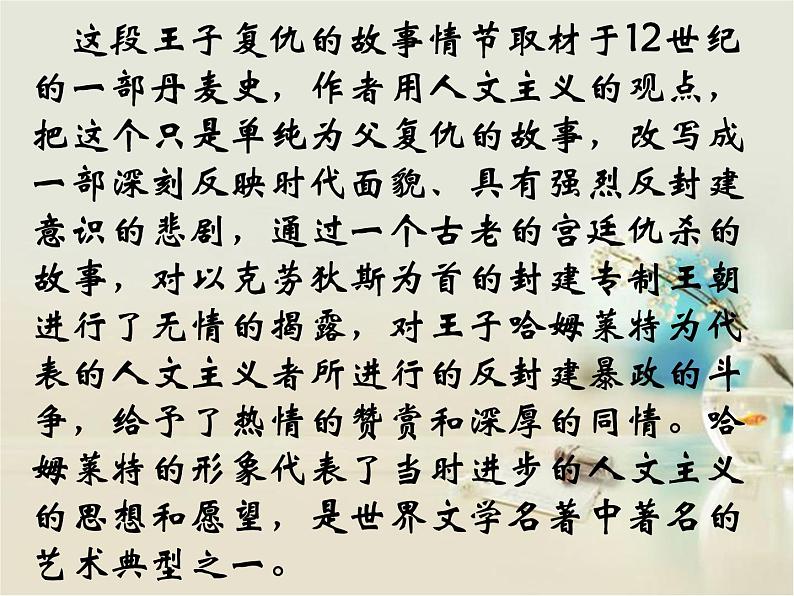 这段王子复仇的故事情节取材于12世纪
的一部丹麦史，作者用人文主义的观点，
把这个只是单纯为父复仇的故事，改写成
一部深刻反映时代面貌、具有强烈反封建
意识的悲剧，通过一个古老的宫廷仇杀的
故事，对以克劳狄斯为首的封建专制王朝
进行了无情的揭露，对王子哈姆莱特为代
表的人文主义者所进行的反封建暴政的斗
争，给予了热情的赞赏和深厚的同情。哈
姆莱特的形象代表了当时进步的人文主义
的思想和愿望，是世界文学名著中著名的
艺术典型之一。